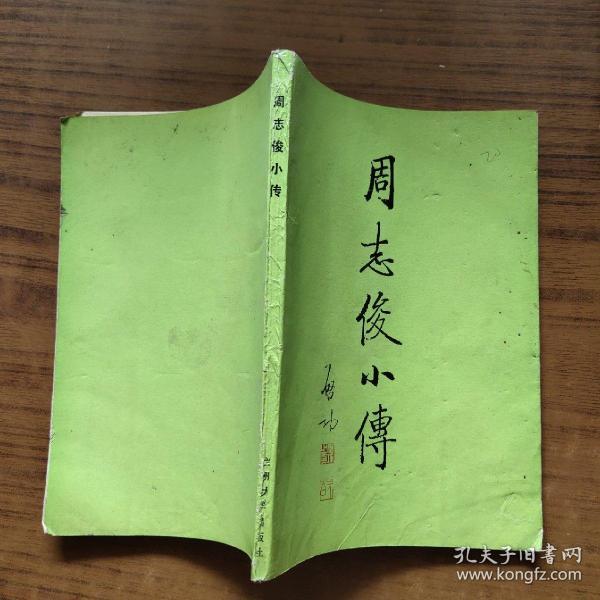 周志俊小传
出版社
周志俊小傳
启功
孔夫子旧书网
www.kongfz.com